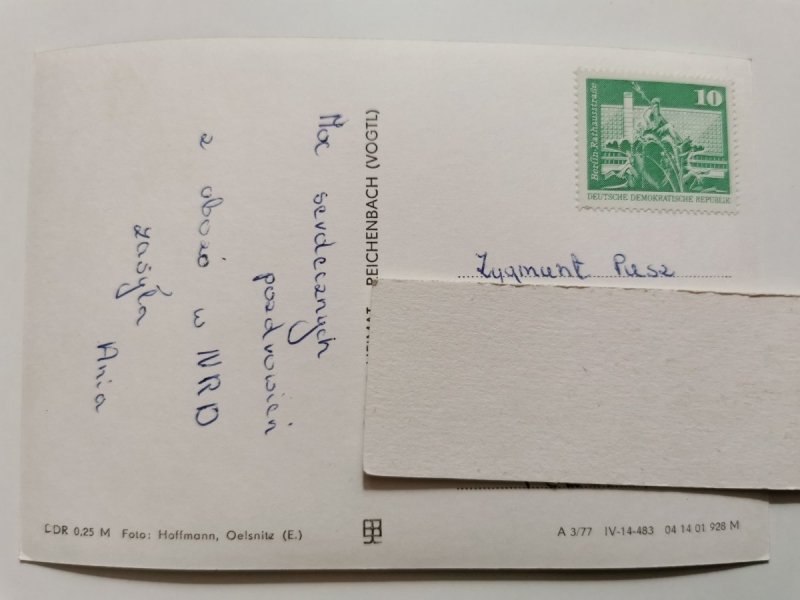 Moc serdecznych
pozdrowień
z obozu w NRD
zasyła
Ania
REICHENBACH (VOGTL)
10
Berlin-Rathausstraße
DEUTSCHE DEMOKRATISCHE REPUBLIK
Zygmunt
DDR 0,25 M Foto: Hoffmann, Oelsnitz (E.)
A 3/77 IV-14-483 04 14 01 928 M